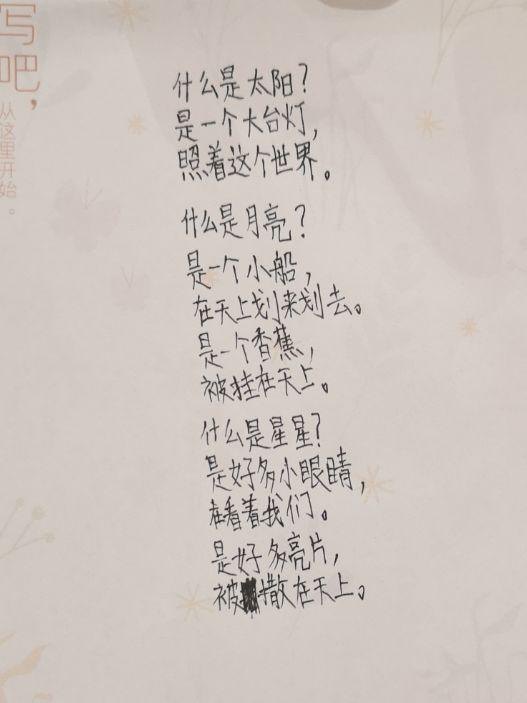 写吧，
从这里开始。
什么是太阳？
是一个大台灯，
照着这个世界。
什么是月亮？
是一个小船，
在天上划来划去。
是一个香蕉，
被挂在天上。
什么是星星？
是好多小眼睛，
在看着我们。
是好多亮片，
被撒在天上。